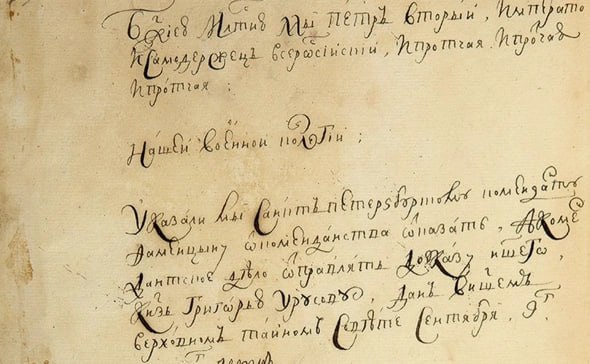 Бжиею млтию мы петръ вторый, императо
и самодержецъ всеросиискии, и протчая и протчая
и протчая:
Нашей военной колегии:
Указали мы санктъ петерзбургскому коменданту
каменданства отказать, а коме
дантское дѣло отправлять до указу ншего,
кнзь григорью урусову, данъ в ншемъ
верховномъ таиномъ совѣте сентября, 9г